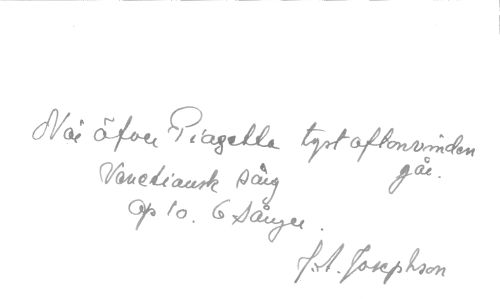 När öfver Piazetta tyst aftonvinden
går.
Venetiansk sång
Op 10. 6 Sånger.
J. A. Josephson